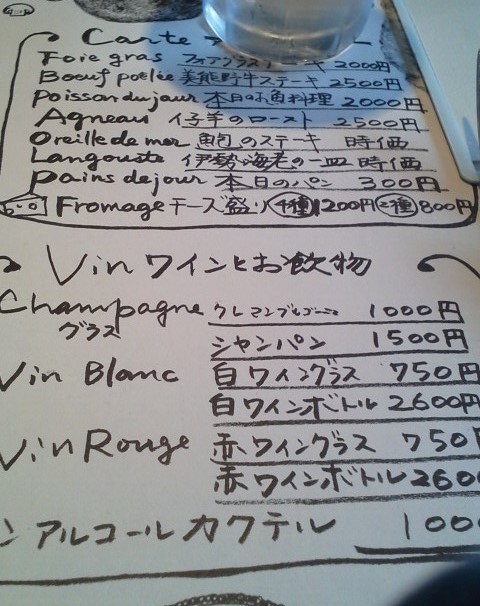 Carte ア
Foie gras フォアグラステーキ 2000円
Boeuf poêlée 美熊野牛ステーキ 2500円
Poisson du jour 本日の魚料理 2000円
Agneau 仔羊のロースト 2500円
Oreille de mer 鮑のステーキ 時価
Langouste 伊勢海老の一皿 時価
Pains de jour 本日のパン 300円
Fromage チーズ盛り 1200円 二種 800円
Vin ワインとお飲物
Champagne クレマンブルゴーニュ 1000円
グラス シャンパン 1500円
Vin Blanc 白ワイングラス 750円
白ワインボトル 2600円
Vin Rouge 赤ワイングラス 750円
赤ワインボトル 2600
ンアルコールカクテル 1000